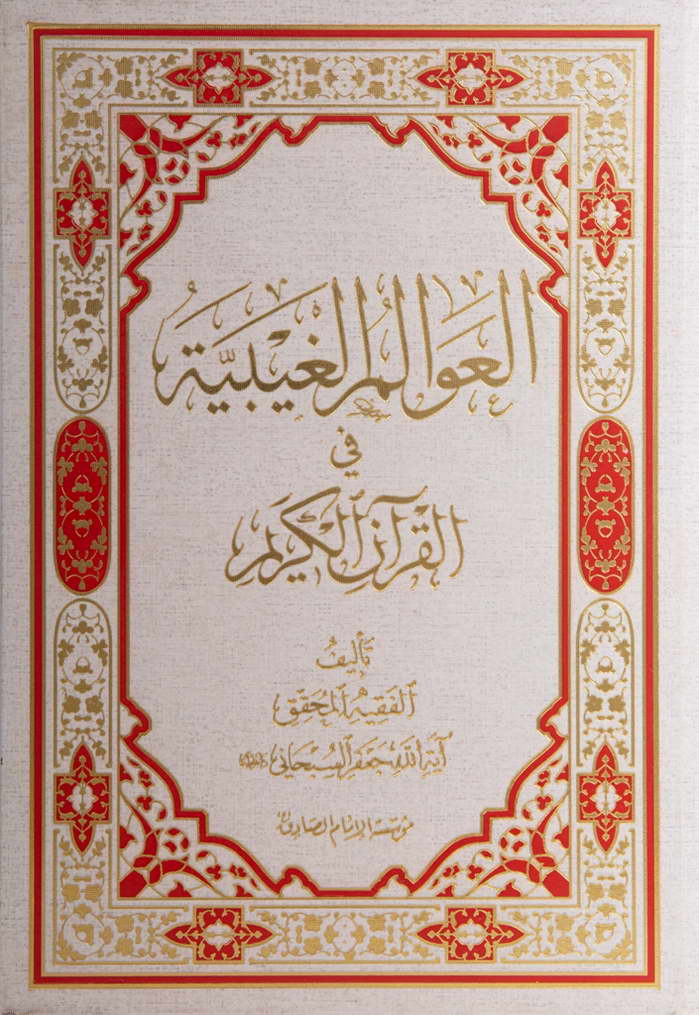 العَوَالِمُ الغَيْبِيَّة
في
القرآنِ الكَرِيم
تأليفُ
الفَقِيهِ المُحَقِّق
آيَةِ اللهِ جَعْفَر السُّبْحَانِيّ
مؤسسة الإمام الصادق